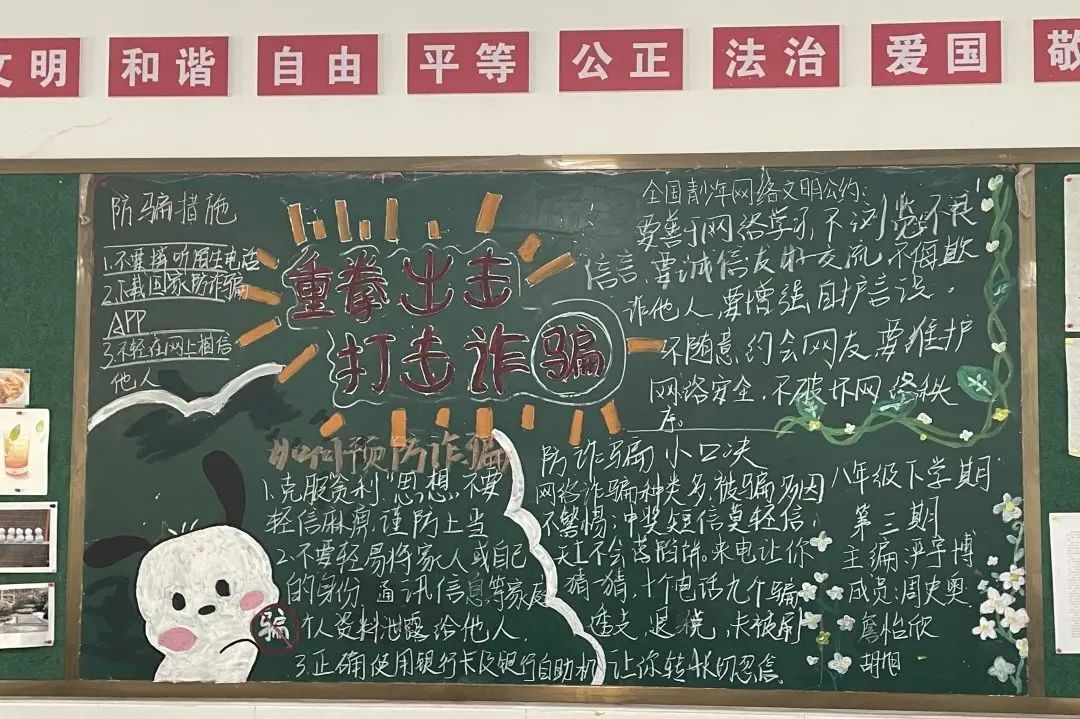 文明 和谐 自由 平等 公正 法治 爱国 敬
防骗措施
1.不要接听陌生电话
2.下载国家防诈骗
APP
3.不轻在网上相信
他人
重拳出击
打击诈骗
全国青少年网络文明公约:
要善于网络学习,不浏览不良
信言,要诚信友好交流,不侮欺
诈他人,要增强自护言识。
不随意约会网友要维护
网络安全,不破坏网络秩
序。
如何预防诈骗
1.克服贪利"思想,不要
轻信麻痹,谨防上当
2.不要轻易将家人或自己
的身份,通讯信息等家庭
个人资料泄露给他人,
3.正确使用银行卡及银行自助机
骗
防诈骗小口决
网络诈骗种类多,被骗多因
不警惕;中奖短信莫轻信;
天上不会落陷饼。来电让你
猜一猜,十个电话九个骗
透支,退税,卡被刷
让你转账切忽信。
八年级下学期
第三期
主编:严宇博
成员:周史奥
詹怡欣
胡旭